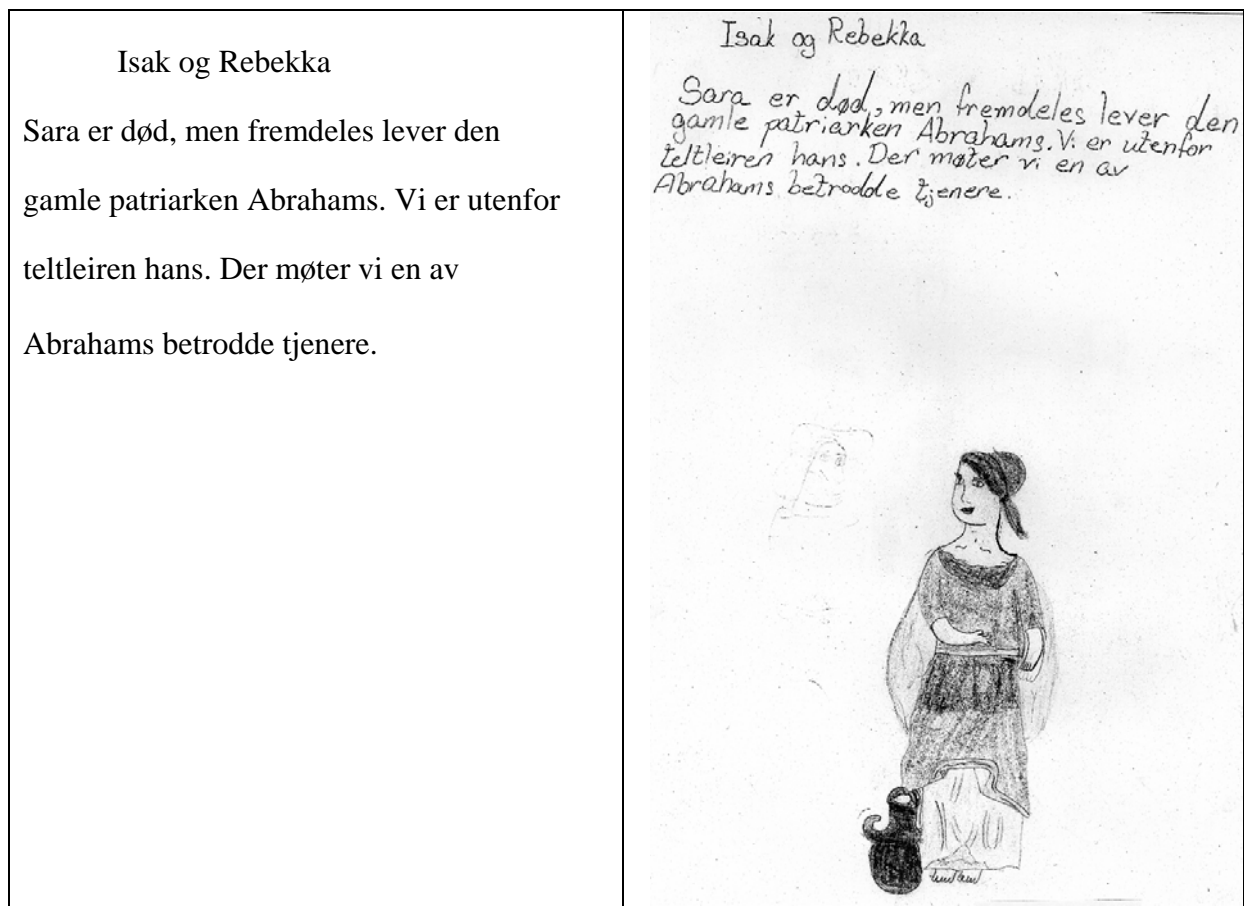 Isak og Rebekka
Sara er død, men fremdeles lever den
gamle patriarken Abrahams. Vi er utenfor
teltleiren hans. Der møter vi en av
Abrahams betrodde tjenere.
Isak og Rebekka
Sara er død, men fremdeles lever den
gamle patriarken Abrahams. Vi er utenfor
teltleiren hans. Der møter vi en av
Abrahams betrodde tjenere.